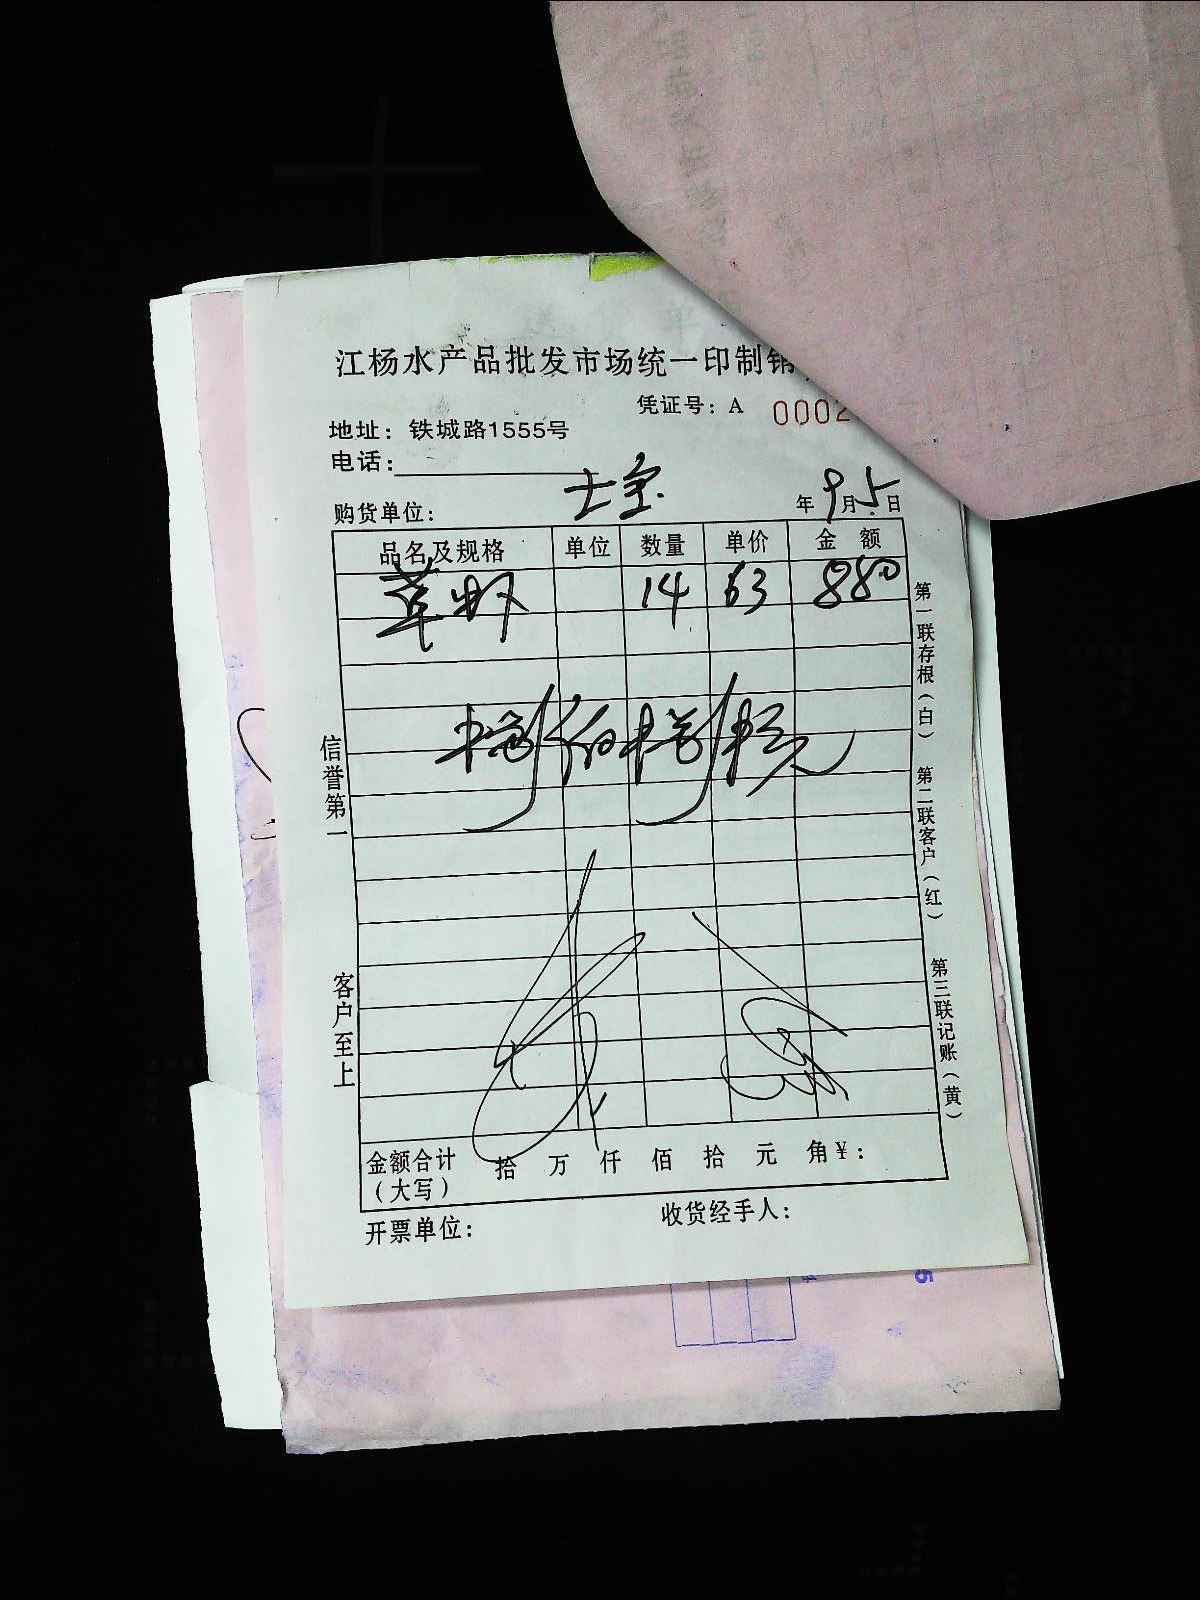 江杨水产品批发市场统一印制销
凭证号：A 0002
地址：铁城路1555号
电话：
购货单位： 士宝 年9月5日
品名及规格 单位 数量 单价 金额
草虾 14 63 880
捌佰捌拾元
金额合计（大写） 拾 万 仟 佰 拾 元 角¥：
开票单位： 收货经手人：
信誉第一 客户至上
第一联存根（白） 第二联客户（红） 第三联记账（黄）